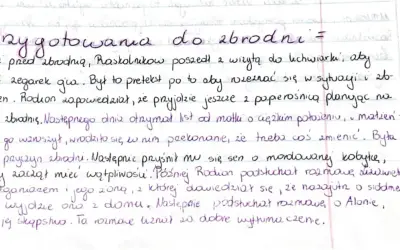 zygotowania do zbrodni =
przed zbrodnią, Raskolnikow poszedł z wizytą do lichwiarki, aby
zegarek ojca. Był to pretekst po to aby rozeznać się w sytuacji i zb
en. Rodion zapowiedział, że przyjdzie jeszcze z papierośnicą planując na
zbrodnię. Następnego dnia otrzymał list od matki o ciężkim położeniu, i małżeń
go wzburzył, wrodziło się w nim przekonanie, że trzeba coś zmienić. Była
przyczyn zbrodni. Następnie przyśnił mu się sen o mordowanej kobyłce,
y zaczął mieć wątpliwości. Później Rodion podsłuchał rozmowę
i jego żoną, z której dowiedział się, że nazajutrz o siódme
wyjdzie ona z domu. Następnie podsłuchał rozmowę o Alonie,
ją skąpstwo. Ta rozmowę uznał za dobre wytłumaczenie.